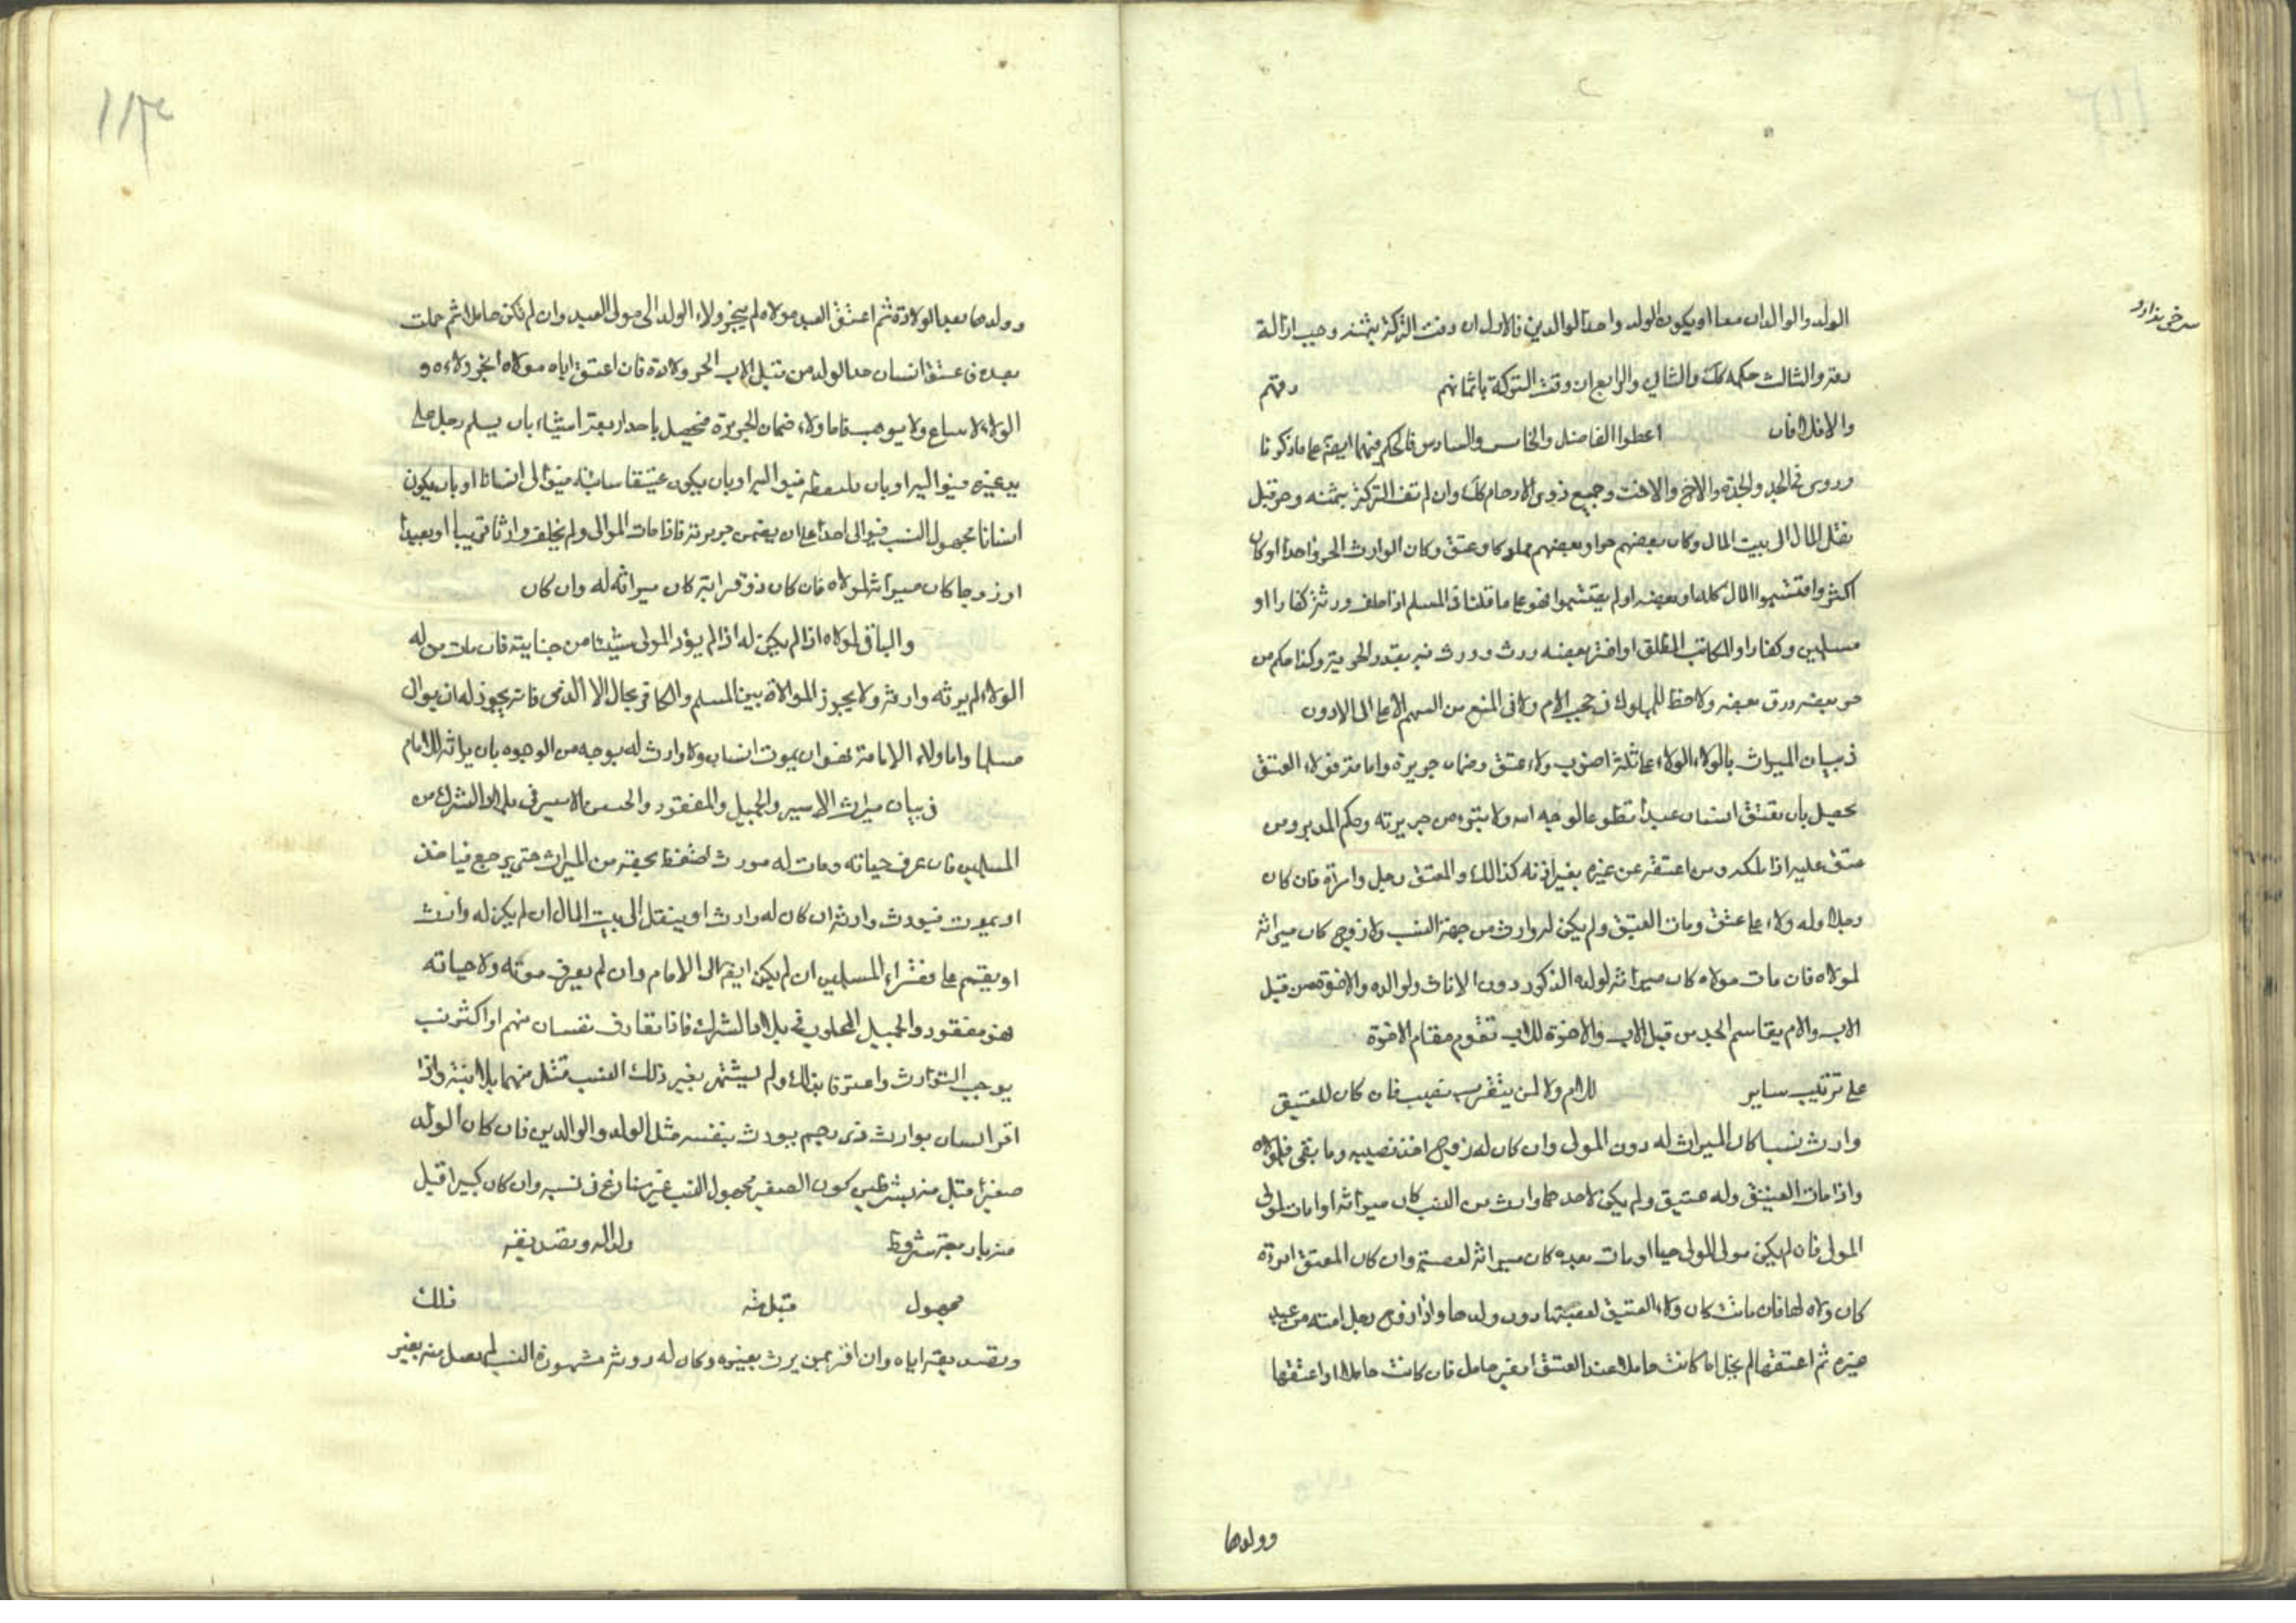 سرخی ندارد
الولد والوالدان معا او يكون الولد واحدا لوالدين فالاول ان وفت التركة بثمنه وجب ازالة
رقه والثالث حكمه كك والثاني والرابع ان وفت التركة باثمانهم رقهم
والا فلا فان اعطوا الفاضل والخامس والسادس فالحكم فيهما ايضا على ما ذكرنا
وروى فى الجد والجدة والاخ والاخت وجميع ذوى الارحام كك وان لم تف التركة بثمنه وحر قيل
نقل المال الى بيت المال وكان بعضهم حرا وبعضهم مملوكا وعتق وكان الوارث الحر واحدا او كان
اكثر واقتسموا المال كله او بعضه او لم يقتسموا فهو على ما قلنا فى المسلم اذا خلف ورثة كفارا او
مسلمين وكفارا والمكاتب المطلق او اخر بعضه ورث وورث منه بقدر الحرية وكذا حكم من
حر بعضه ورق بعضه ولا حظ للمملوك فى حجب الام ولا فى المنع من السهم الاعلى الى الادون
فى بيان الميراث بالولاء الولاء على ثلثة اضرب ولاء عتق وضمان جريرة وامامة فولاء العتق
يحصل بان يعتق انسان عبدا تطوعا لوجه الله ولا يتبرء من جريرته وحكم المدبر ومن
عتق عليه اذا ملكه ومن اعتقه عن غيره بغير اذنه كذالك والمعتق رجل وامراة فان كان
رجلا وله ولاء على عتق ومات العتيق ولم يكن له وارث من جهة النسب ولا زوج كان ميراثه
لمولاه فان مات مولاه كان ميراثه لولده الذكور دون الاناث ولوالده والاخوة من قبل
الاب والام يقاسم الجد من قبل الاب والاخوة للاب تقوم مقام الاخوة
على ترتيب ساير للام ولا لمن يتقرب نصيب فان كان للعتيق
وارث نسبا كان الميراث له دون المولى وان كان له زوج اخذ نصيبه وما بقى فلمولاه
واذا مات العتيق وله عتيق ولم يكن لاحدهما وارث من النسب كان ميراثه او امات لمولى
المولى فان لم يكن مولى المولى حيا او مات بعده كان ميراثه لعصبته وان كان المعتق امراة
كان ولاه لها فان ماتت كان ولاء العتيق لعصبتها دون ولدها واذا زوج رجل امته من عبد
غيره ثم اعتقها لم يخل اما كانت حاملا عند العتق او غير حامل فان كانت حاملا او اعتقها
وولدها
وولدها بعد الولادة ثم اعتق العبد مولاه لم ينجر ولاء الولد الى مولى العبد وان لم تكن حاملا ثم حملت
بعده فى عتق انسان حد الولد من قبل الاب الحر ولادة فان اعتق اياه مولاه انجر ولاءه و
الولاء لا يباع ولا يوهب فاما ولاء ضمان الجريرة فيحصل باحد اربعة اشياء بان يسلم رجل على
يد غيره فيتوالى اليه او بان يلتقطه فيتوالى اليه او بان يكون عتيقا سائبة فيتوالى انسانا او بان يكون
انسانا مجهول النسب فيوالى احدا على ان يضمن جريرته فاذا مات الموالى ولم يخلف وارثا قريبا او بعيدا
او زوجا كان ميراثه لمولاه فان كان ذو قرابة كان ميراثه له وان كان
والباقى لمولاه اذا لم يكن له اذا لم يؤد المولى شيئا من جنايته فان مات من له
الولاء لم يورثه وارثه ولا يجوز الموالاة بين المسلم والكافر بحال الا الذمى فانه يجوز له ان يوالى
مسلما واما ولاء الامامة فهو ان يموت انسان ولا وارث له بوجه من الوجوه بان ميراثه للامام
فى بيان ميراث الاسير والحميل والمفقود والحسن الاسير فى بلاد الشرك من
المسلمين فان عرف حياته ومات له مورث احتفظ بحقه من الميراث حتى يرجع فياخذ
او يموت فيورث وارثه ان كان له وارث او ينتقل الى بيت المال ان لم يكن له وارث
او يقسم على فقراء المسلمين ان لم يكن ايضا الى الامام وان لم يعرف موته ولا حياته
فهو مفقود والحميل المجلوب فى بلاد الشرك فاذا تعارف نفسان منهم او اكثر نسب
يوجب التوارث واعترفا بذالك ولم يشتهر بغير ذلك النسب قبل منهما بلا بينة واذا
اقر انسان بوارث ذى رحم يورث بنفسه مثل الولد والوالدين فان كان الولد
صغيرا قبل منه بشرطين كون الصغير مجهول النسب غير منازع فى نسبه وان كان كبيرا قيل
منه باربعة شروط ولدا له وتصديقه
مجهول قبل منه ذلك
وتصديقه اياه وان اقر بمن يرث بغيره وكان له ورثة مشهورة النسب لم يعمل منه بغير